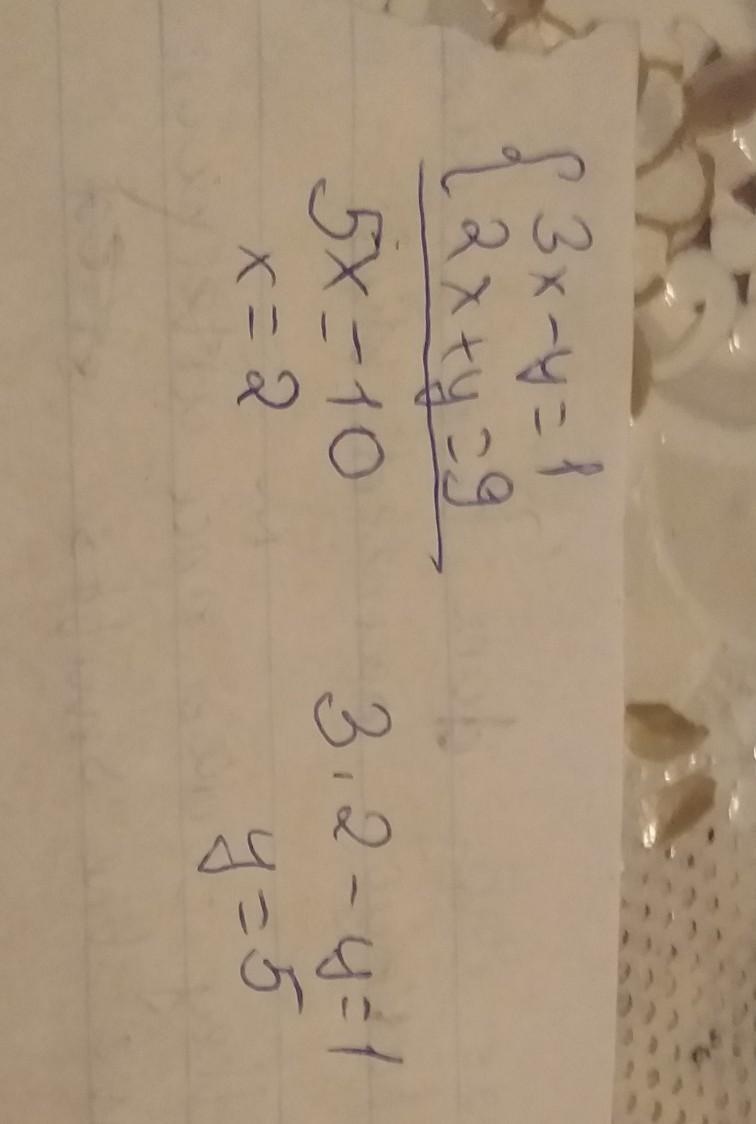 { 3x - y = 1
2x + y = 9
5x = 10
x = 2
3 · 2 - y = 1
y = 5